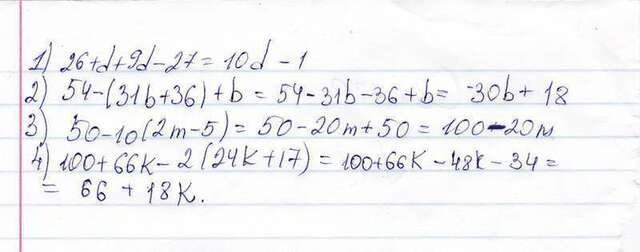 1) 26+d+9d-27=10d-1
2) 54-(31b+36)+b=54-31b-36+b=-30b+18
3) 50-10(2m-5)=50-20m+50=100-20m
4) 100+66K-2(24K+17)=100+66K-48K-34=
= 66+18K.